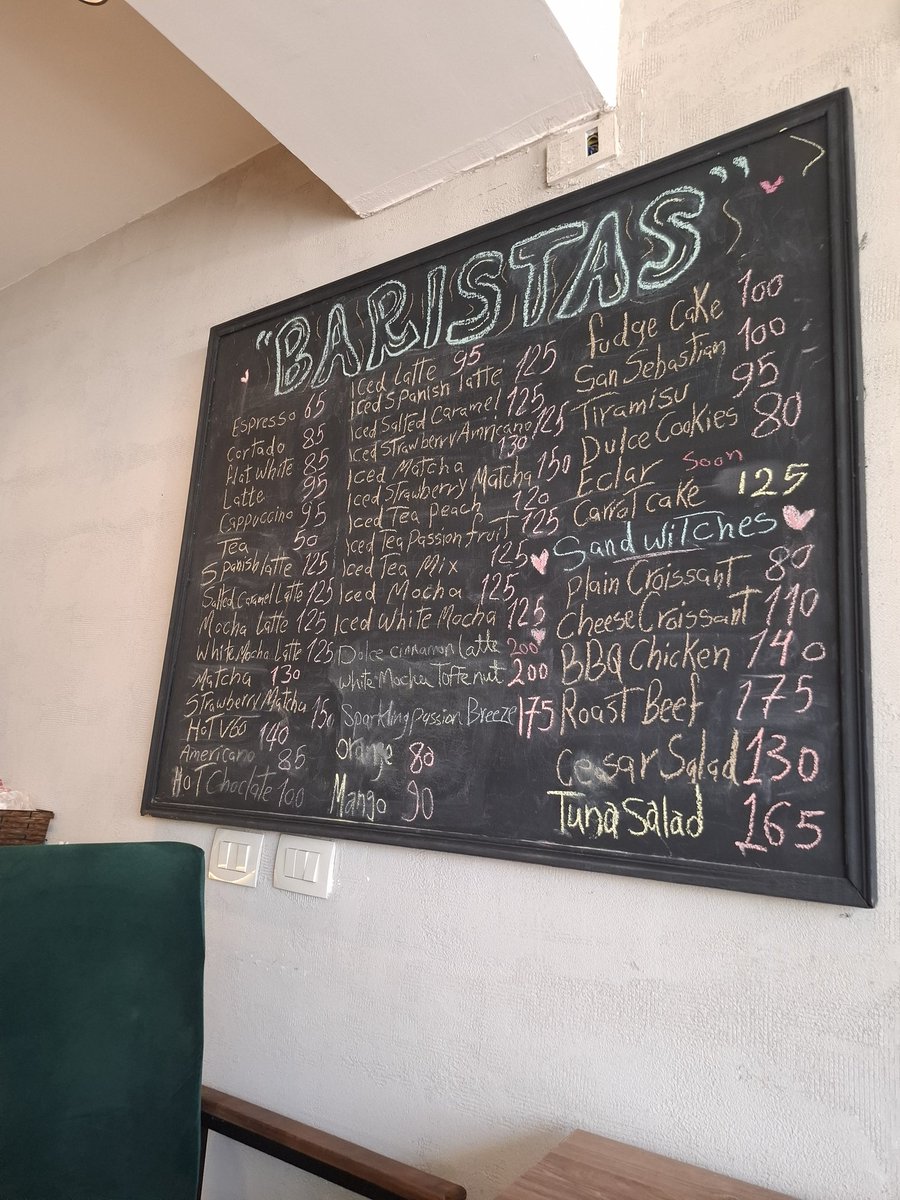 "BARISTAS"
Espresso 65
Cortado 85
flat white 85
Latte 95
Cappuccino 95
Tea 50
Spanish latte 125
Salted Caramel Latte 125
Mocha Latte 125
White Mocha Latte 125
Matcha 130
Strawberry Matcha 150
HoT V60 140
Americano 85
HoT Choclate 100
Iced Latte 95
Iced Spanish latte 125
Iced Salted Caramel 125
Iced Strawberry Amricano 125
Iced Matcha 130
Iced Strawberry Matcha 150
Iced Tea peach 120
Iced Tea Passion fruit 125
Iced Tea Mix 125
Iced Mocha 125
Iced White Mocha 125
Dolce cinnamon Latte 200
White Mocha Toffenut 200
Sparkling passion Breeze 175
Orange 80
Mango 90
fudge Cake 100
San Sebastian 100
Tiramisu 95
Dulce Cookies 80
Eclar Soon
Carrot cake 125
Sandwitches
Plain Croissant 80
Cheese Croissant 110
BBQ Chicken 140
Roast Beef 175
Ceasar Salad 130
Tuna Salad 165